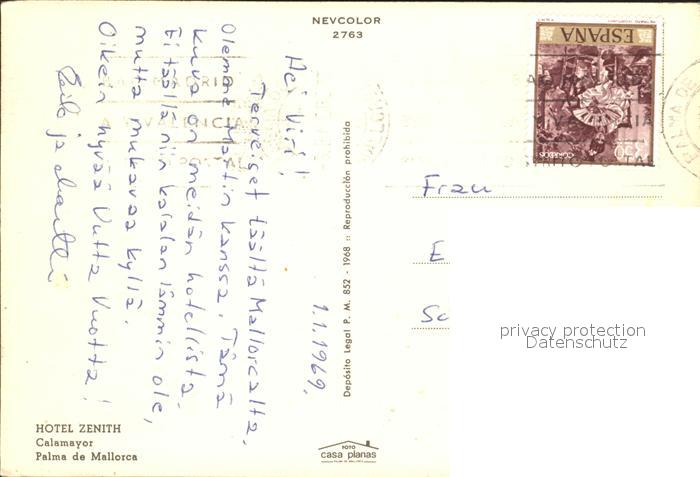 NEVCOLOR
2763
1.1.1969.
Hei Viri!
Terveiset täältä Mallorcalta.
Olemme Martin kanssa. Tämä
kuva on meidän hotellista.
Ei täällä niin kalalan lämmin ole,
mutta mukavaa kyllä.
Oikein hyvää Uutta Vuotta!
ja
HOTEL ZENITH
Calamayor
Palma de Mallorca
Depósito Legal P. M. 852 - 1968 :: Reproducción prohibida
FOTO
casa planas
ESPAÑA
CORREOS
VALENCIA
POSTAL
PALMA DE
Frau
E
Sc
privacy protection
Datenschutz